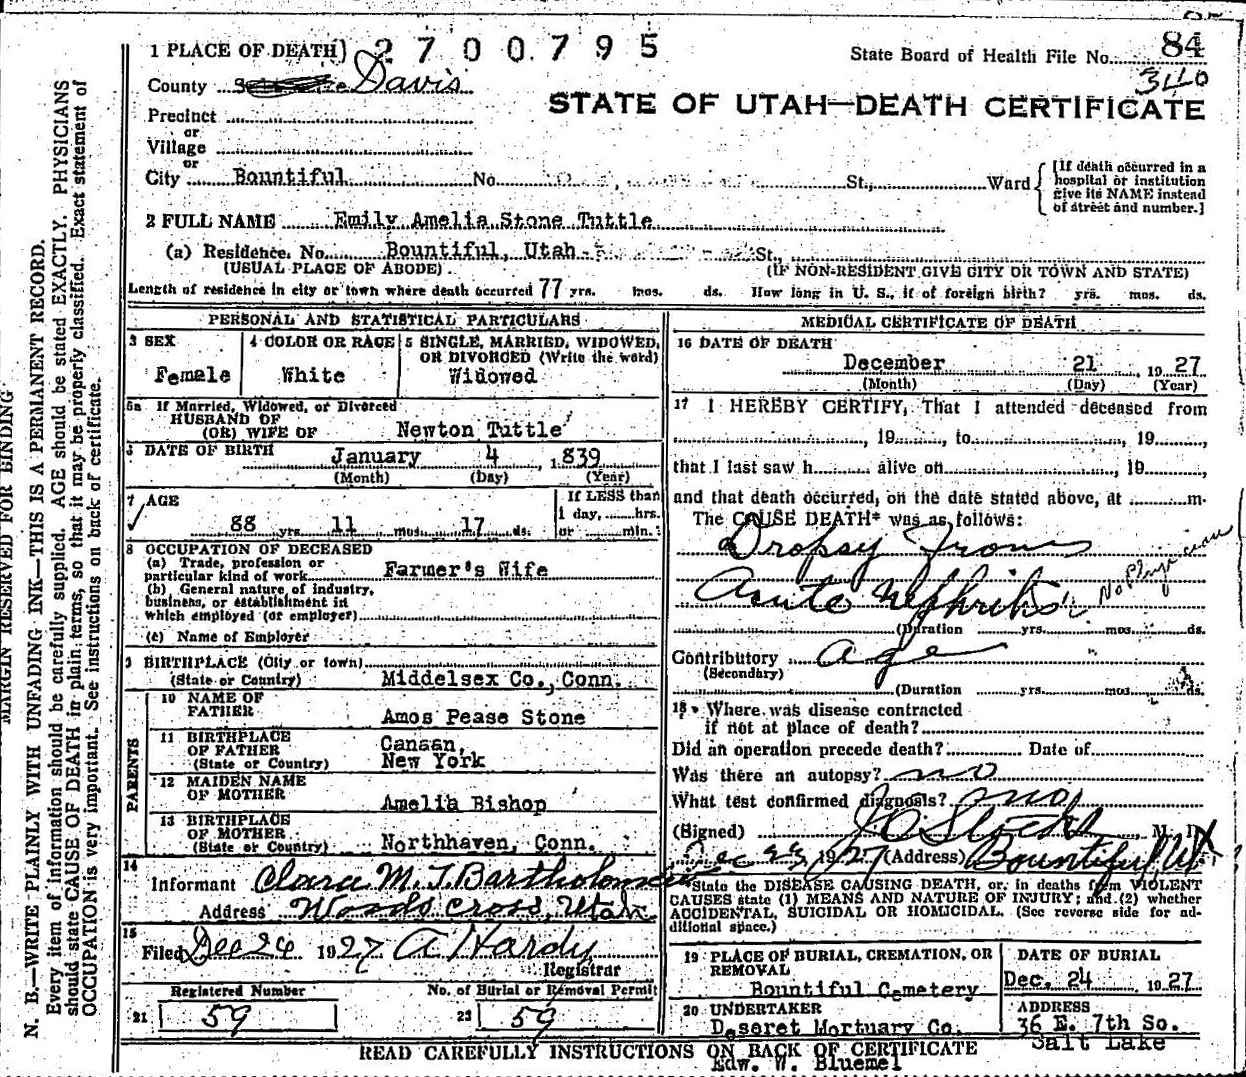 1 PLACE OF DEATH) 2700795
State Board of Health File No. 84
340
County Davis
STATE OF UTAH—DEATH CERTIFICATE
Precinct
or
Village
or
City Bountiful No. St., Ward
[If death occurred in a hospital or institution give its NAME instead of street and number.]
2 FULL NAME Emily Amelia Stone Tuttle
(a) Residence. No. Bountiful, Utah St.,
(USUAL PLACE OF ABODE) (IF NON-RESIDENT GIVE CITY OR TOWN AND STATE)
Length of residence in city or town where death occurred 77 yrs. mos. ds. How long in U. S., if of foreign birth? yrs. mos. ds.
PERSONAL AND STATISTICAL PARTICULARS
3 SEX
Female
4 COLOR OR RACE
White
5 SINGLE, MARRIED, WIDOWED,
OR DIVORCED (Write the word)
Widowed
5a If Married, Widowed, or Divorced
HUSBAND OF
(OR) WIFE OF Newton Tuttle
6 DATE OF BIRTH
January 4, 1839
(Month) (Day) (Year)
7 AGE
88 yrs. 11 mos. 17 ds.
If LESS than
1 day, hrs.
or min.
8 OCCUPATION OF DECEASED
(a) Trade, profession or
particular kind of work Farmer's Wife
(b) General nature of industry,
business, or establishment in
which employed (or employer)
(c) Name of Employer
9 BIRTHPLACE (City or town)
(State or Country) Middelsex Co., Conn.
PARENTS
10 NAME OF
FATHER Amos Pease Stone
11 BIRTHPLACE
OF FATHER Canaan,
(State or Country) New York
12 MAIDEN NAME
OF MOTHER Amelia Bishop
13 BIRTHPLACE
OF MOTHER
(State or Country) Northhaven, Conn.
14
Informant Clara M. T. Bartholomew
Address Woods Cross, Utah
15
Filed Dec 24 1927 A Hardy
Registrar
Registered Number No. of Burial or Removal Permit
21 59 22 59
MEDICAL CERTIFICATE OF DEATH
16 DATE OF DEATH
December 21, 1927
(Month) (Day) (Year)
17 I HEREBY CERTIFY, That I attended deceased from
, 19, to , 19,
that I last saw h alive on , 19,
and that death occurred, on the date stated above, at m.
The CAUSE DEATH* was as follows:
Dropsy From
Acute Nephritis No Physician
(Duration yrs. mos. ds.
Contributory Age
(Secondary)
(Duration yrs. mos. ds.
18 Where was disease contracted
if not at place of death?
Did an operation precede death? Date of
Was there an autopsy? no
What test confirmed diagnosis? no
(Signed) M. D.
Dec 1927 (Address) Bountiful Ut
*State the DISEASE CAUSING DEATH, or, in deaths from VIOLENT
CAUSES state (1) MEANS AND NATURE OF INJURY; and (2) whether
ACCIDENTAL, SUICIDAL OR HOMICIDAL. (See reverse side for ad-
ditional space.)
19 PLACE OF BURIAL, CREMATION, OR
REMOVAL
Bountiful Cemetery
DATE OF BURIAL
Dec. 24 1927
20 UNDERTAKER
Deseret Mortuary Co.
ADDRESS
36 E. 7th So.
Salt Lake
READ CAREFULLY INSTRUCTIONS ON BACK OF CERTIFICATE
Edw. W. Bluemel
MARGIN RESERVED FOR BINDING
N. B.—WRITE PLAINLY WITH UNFADING INK—THIS IS A PERMANENT RECORD.
Every item of information should be carefully supplied. AGE should be stated EXACTLY. PHYSICIANS
should state CAUSE OF DEATH in plain terms, so that it may be properly classified. Exact statement of
OCCUPATION is very important. See instructions on back of certificate.